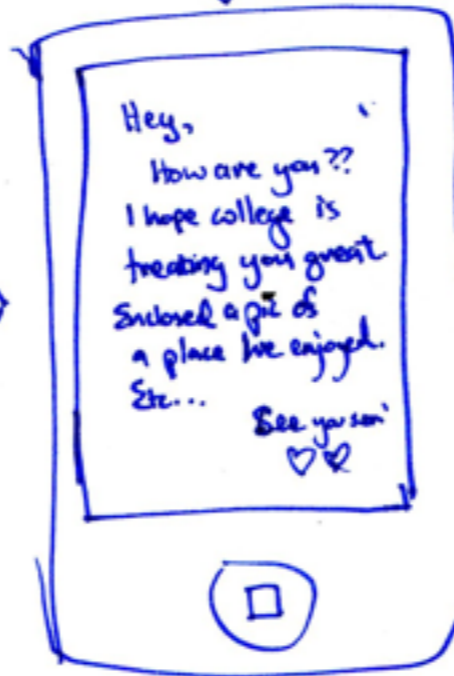 Hey,
How are you??
I hope college is
treating you great.
Enclosed a pic of
a place I've enjoyed.
Etc...
See you soon